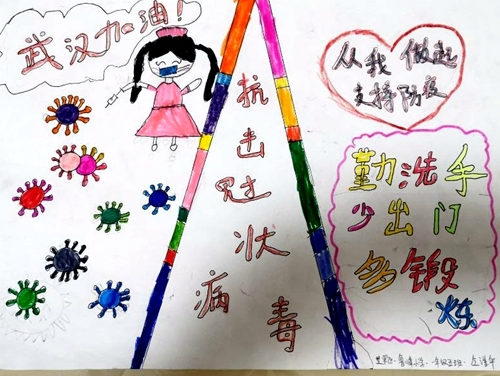 武汉加油!
从我做起
支持防疫
抗击冠状
病毒
勤洗手
少出门
多锻
炼